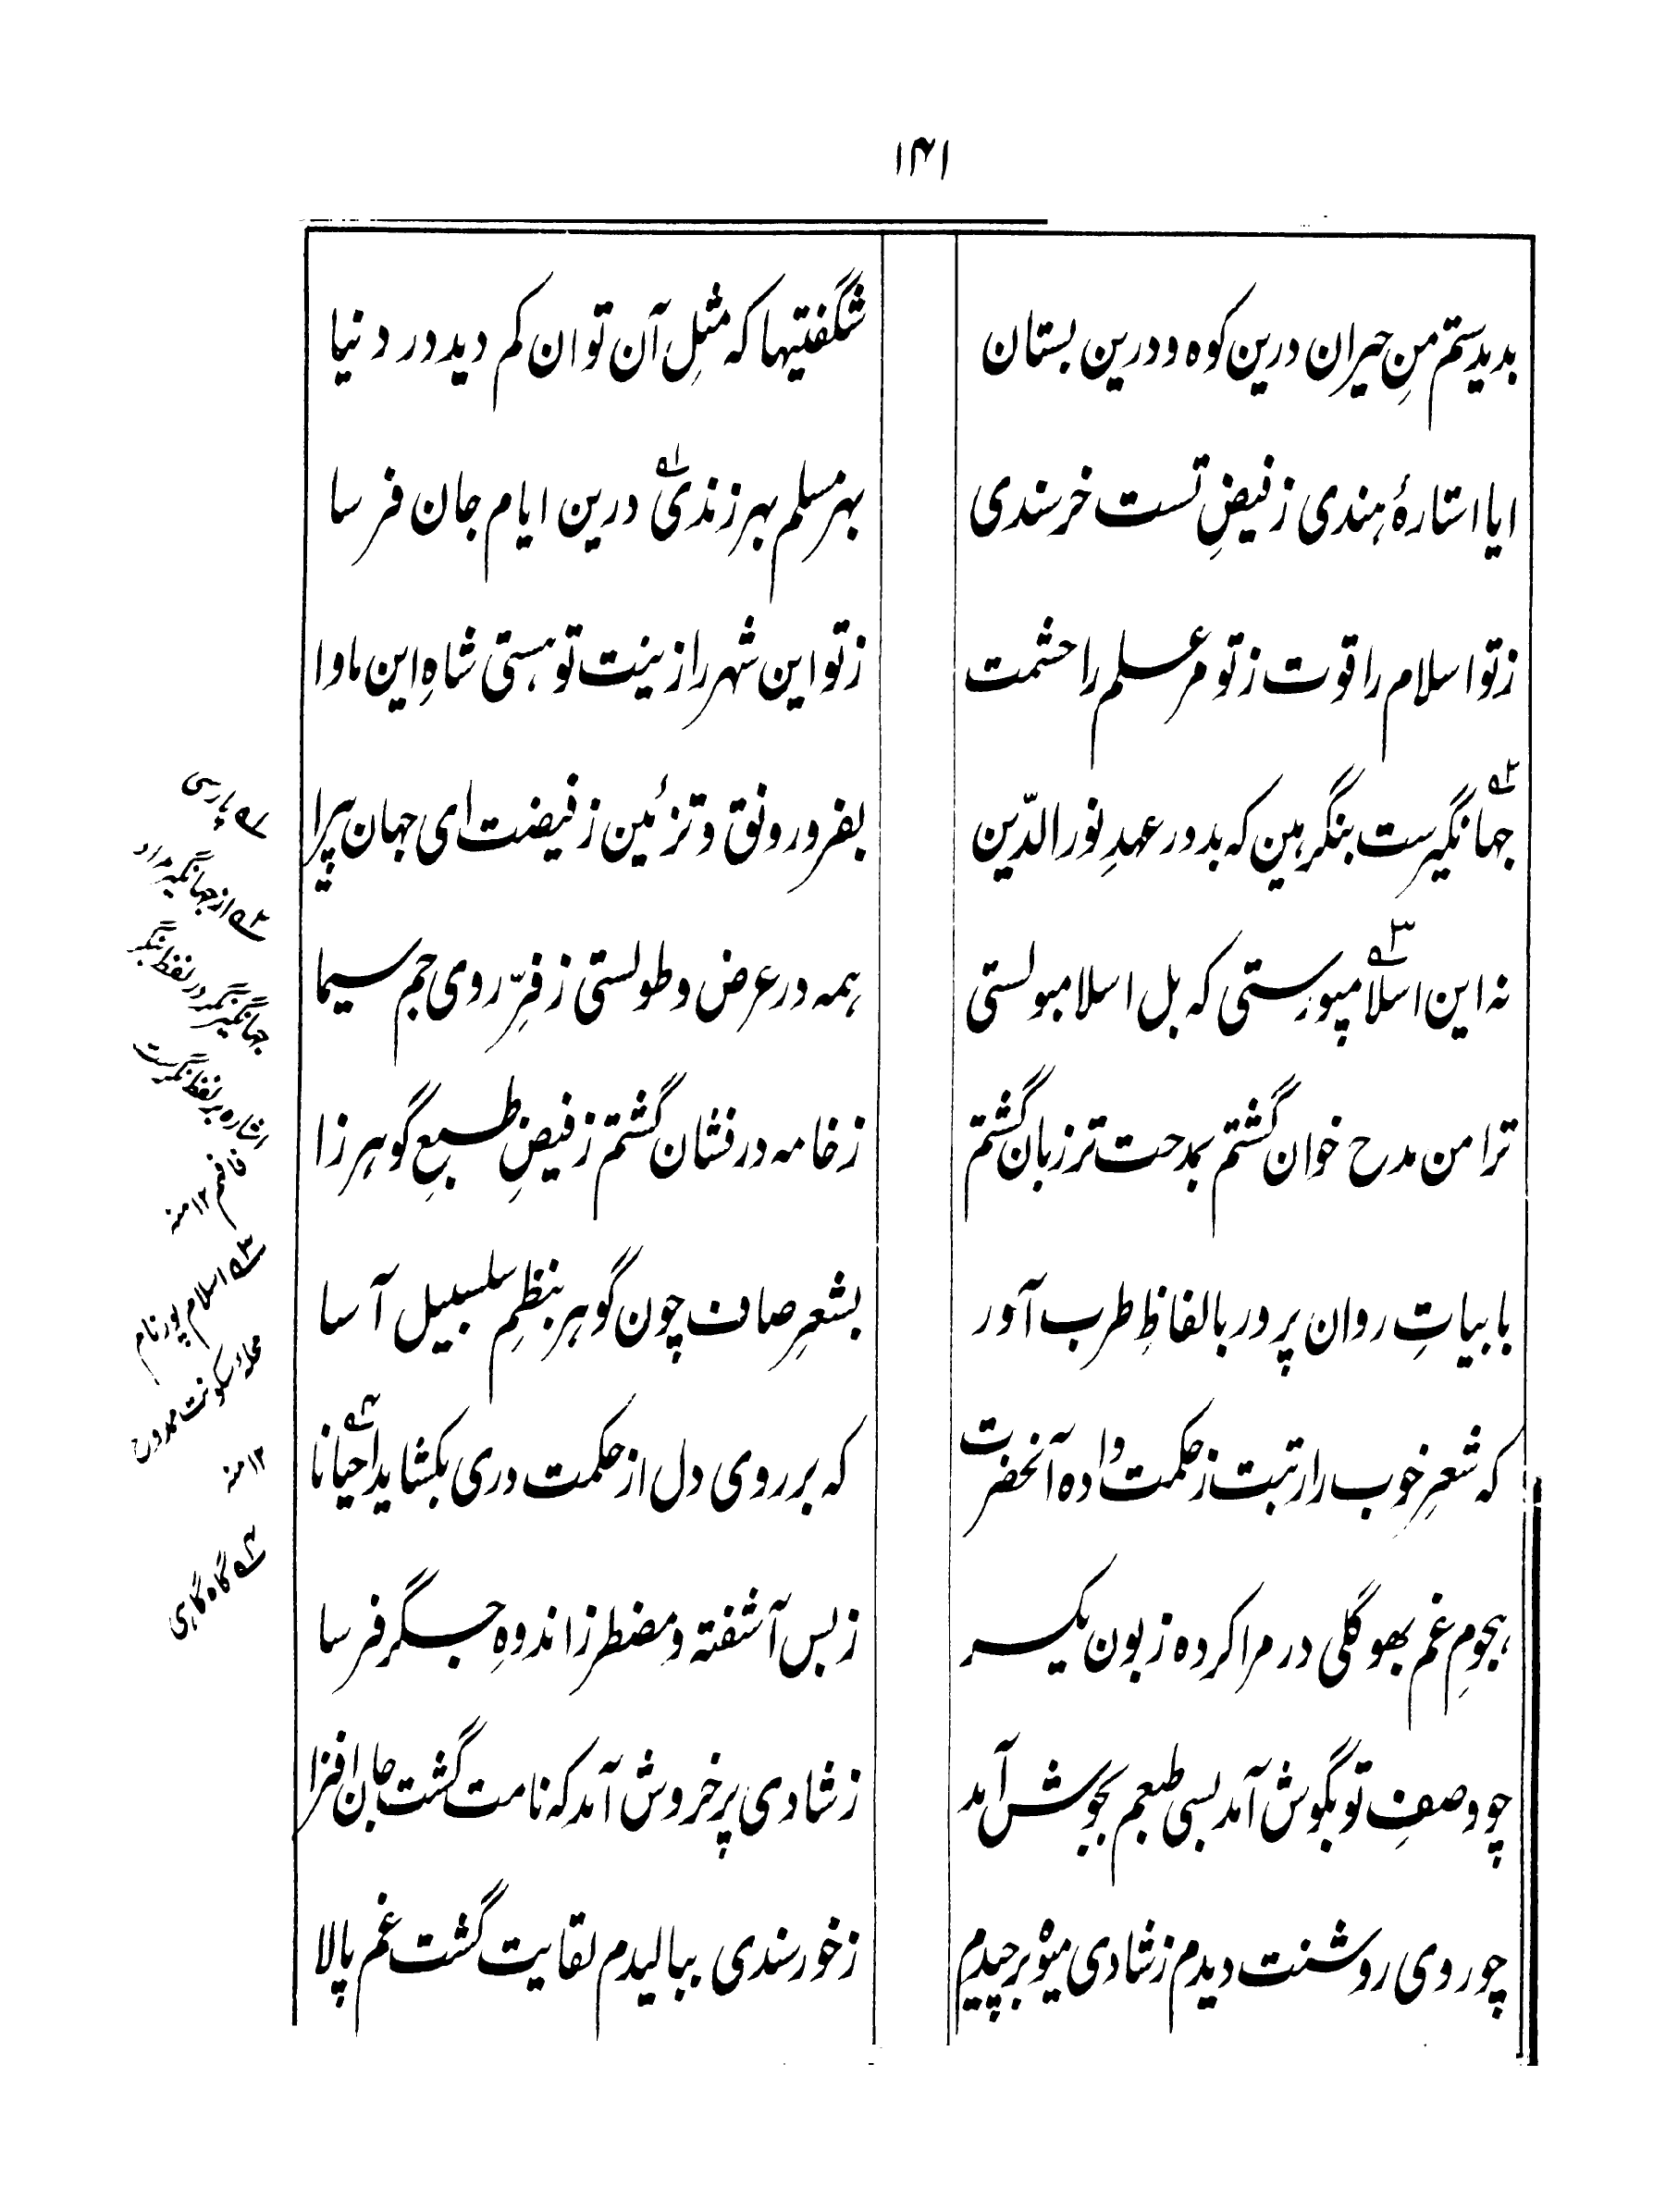 ۱۴۱
بدیدستم منِ حیران درین کوه و درین بستان
شگفتیها که مثلِ آن توان کم دید در دنیا
ایا استارۂ هندی ز فیضِ تست خرسندی
بهر مسلم بهر زندی ۱ درین ایام جان فرسا
ز تو اسلام را قوت ز تو مر علم را حشمت
ز تو این شهر را زینت تو هستی شاهِ این ماوا
جهانگیرست ۲ بنگر هین که بد در عهدِ نور الدّین
بفر و رونق و تزئین ز فیضت ای جهان پیرا
نه این اسلامپورستی ۳ که بل اسلامبولستی
همه در عرض و طولستی ز فرِّ روی جم سیما
ترا من مدح خوان گشتم بمدحت تر زبان گشتم
ز خامه در فشان گشتم ز فیضِ طبعِ گوهر زا
بابیاتِ روان پرور بالفاظِ طرب آور
بشعرِ صاف چون گوهر بنظمِ سلسبیل آسا
که شعرِ خوب را رتبت ز حکمت داده آنحضرت
که بر روی دل از حکمت دری بکشاید احیانا ۴
هجومِ غم بهوگلی در مرا کرده زبون یکسر
ز بس آشفته و مضطر ز اندوهِ جگر فرسا
چو وصفِ تو بگوش آمد بسی طبعم بجوش آمد
ز شادی پر خروش آمد که نامت گشت جان افزا
چو روی روشنت دیدم ز شادی میوه برچیدم
ز خورسندی ببالیدم لقایت گشت غم پالا
۱ پارسی
۲ از جهانگیر مراد
جهانگیر نگر در لفظ بنگر
اشاره بر لفظ نگرست
فافهم ۱۲ منه
۳ اسلام پور نام
محلۂ سکونت ممدوح
۱۲ منه
۴ گاه گاهی